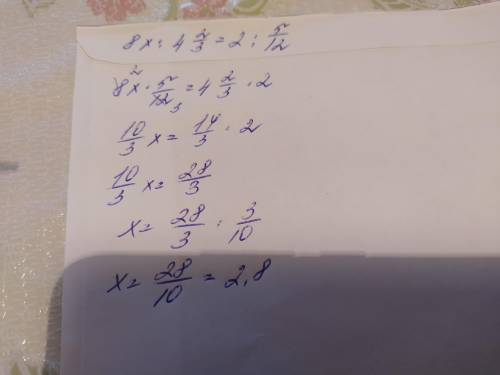 8x : 4 2/3 = 2 : 5/12
8² x · 5/12₃ = 4 2/3 · 2
10/3 x = 14/3 · 2
10/3 x = 28/3
x = 28/3 · 3/10
x = 28/10 = 2,8